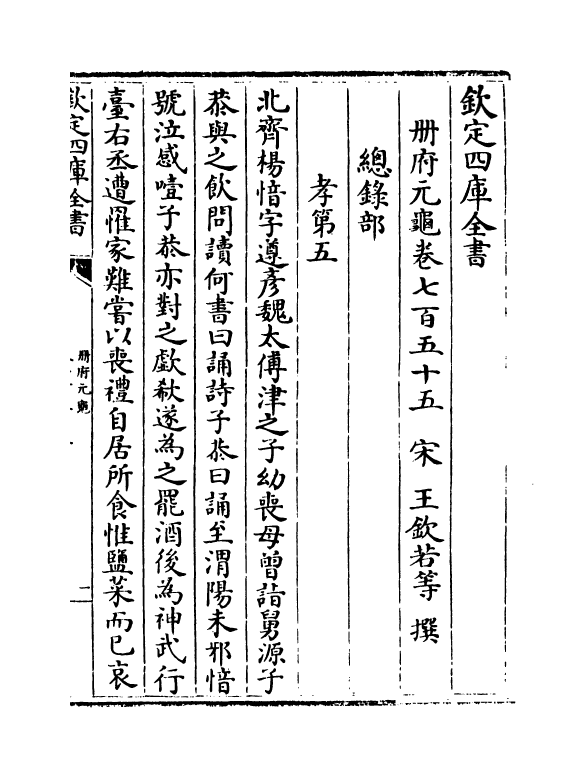 欽定四庫全書
册府元龜卷七百五十五　宋　王欽若等　撰
總錄部
孝第五
北齊楊愔字遵彥魏太傅津之子幼喪母曾詣舅源子
恭與之飲問讀何書曰誦詩子恭曰誦至渭陽未邪愔
號泣感噎子恭亦對之歔欷遂為之罷酒後為神武行
臺右丞遭罹家難嘗以喪禮自居所食惟鹽菜而已哀
欽定四庫全書
册府元龜